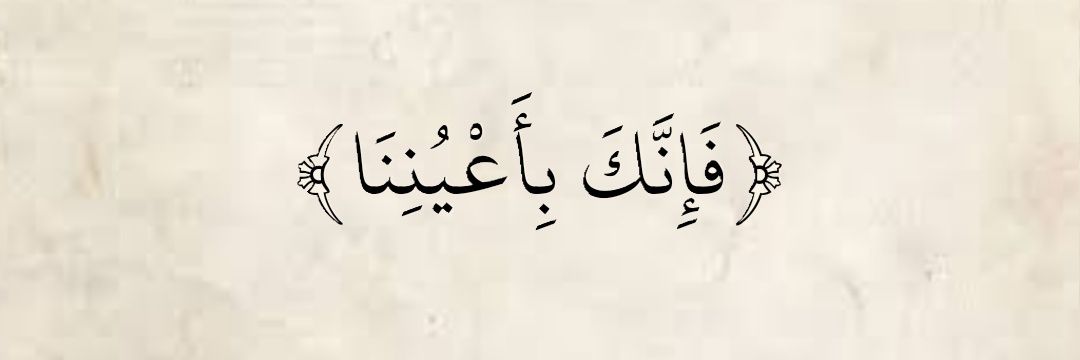 ﴿فَإِنَّكَ بِأَعْيُنِنَا﴾